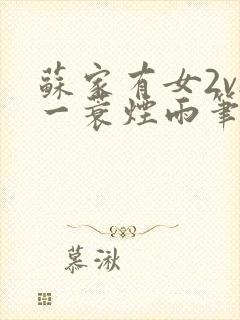 蘇家有女2v
一蓑煙雨筆
慕湫